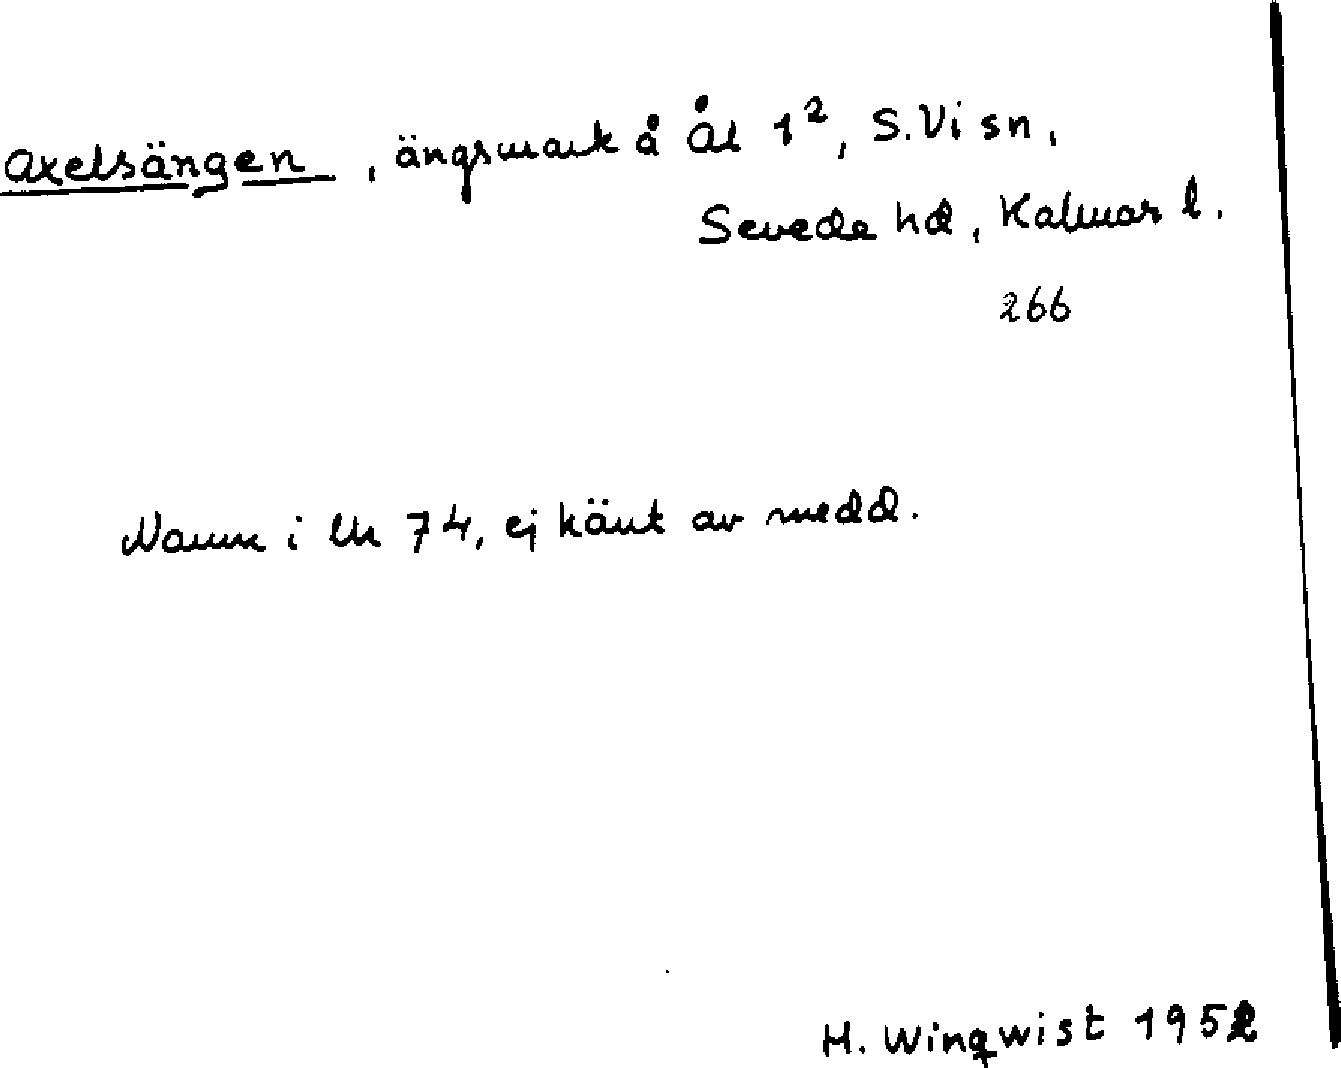 Axelsängen, ängsmark å Ål 1², S.Vi sn,
Sevede hd, Kalmar l.
266
Namn i Uk 74, ej känt av medd.
H. Winqwist 1952